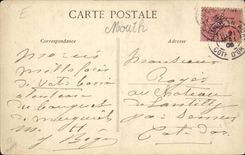 E
CARTE POSTALE
Mouth
Correspondance
Adresse
Merci
mille fois
de votre
attention
du bouquet
de muguet
M
Monsieur
Royer
au Château
de Lantilly
par Semur
Côte-d'or
CÔTE D'OR